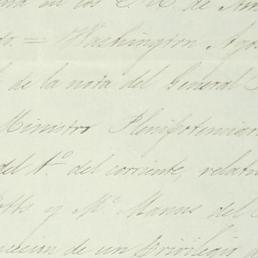 en los E.U. de
Washington Ago
de la nota del General
Ministro Plenipotenciar
del 1º del corriente, relat
y Mc. Manus del
de un privilegio